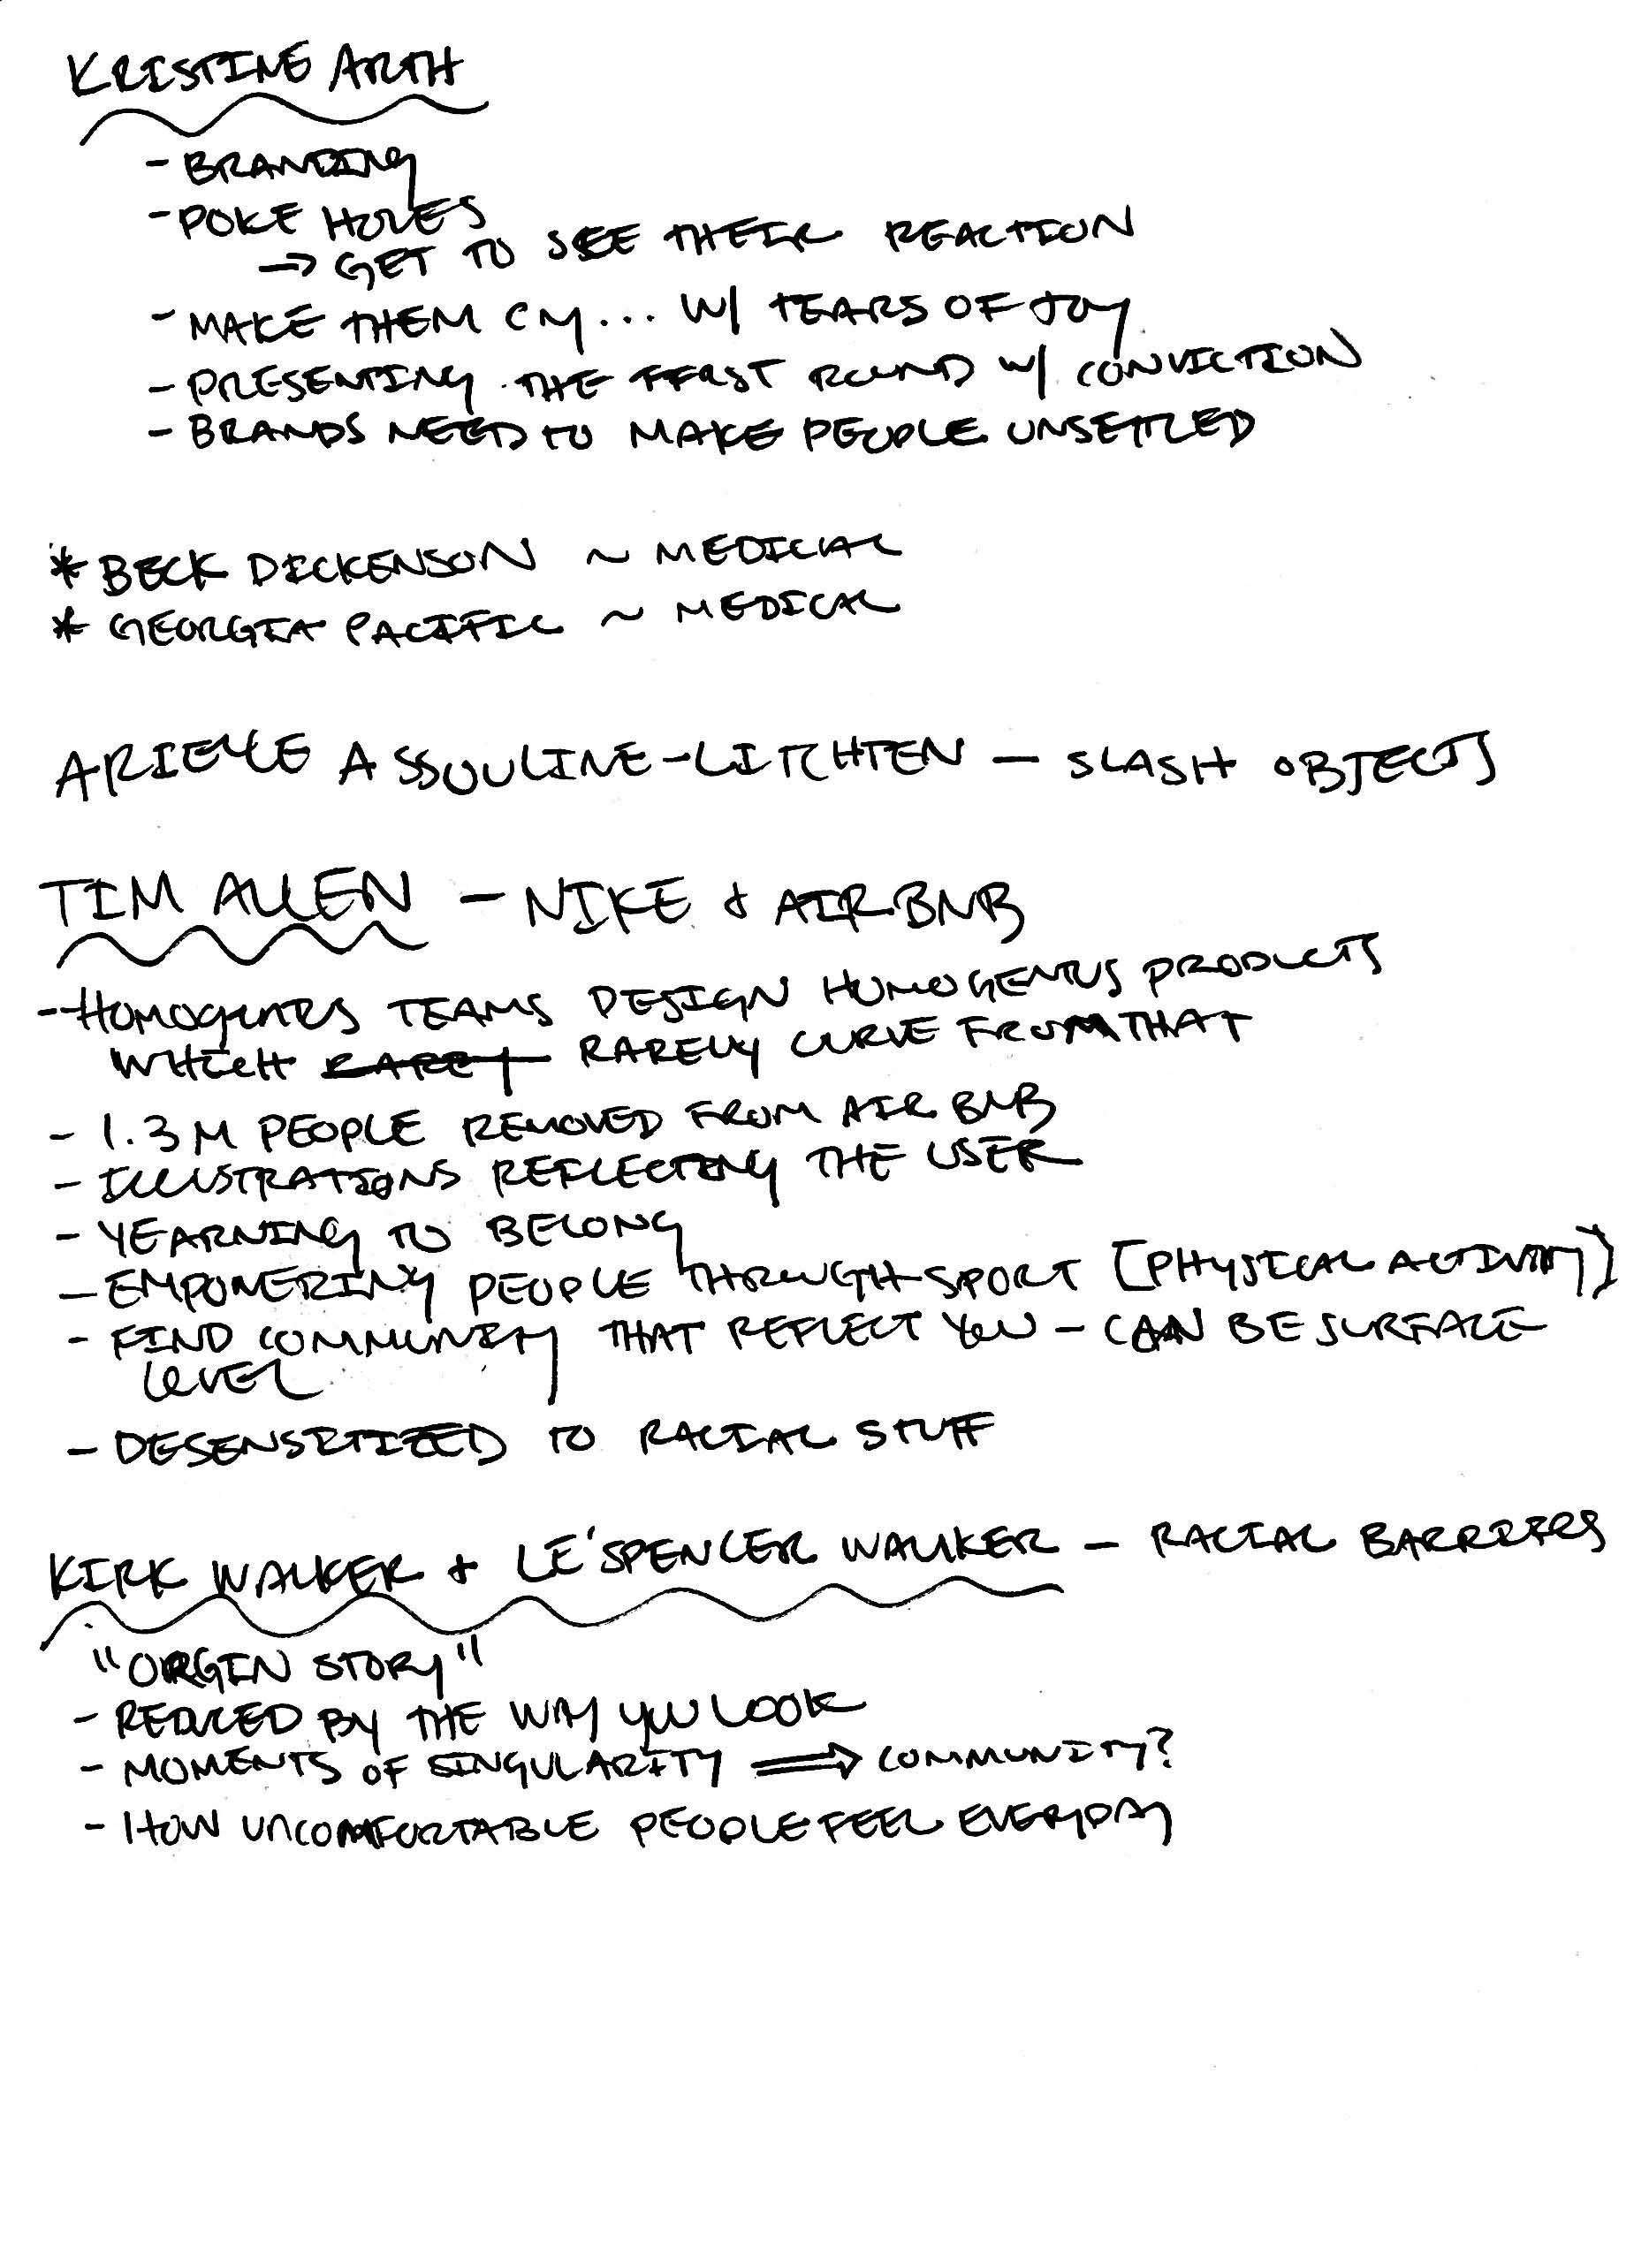 KRISTINE ARTH
- BRANDING
- POKE HOLES
→ GET TO SEE THEIR REACTION
- MAKE THEM CRY... W/ TEARS OF JOY
- PRESENTING THE FIRST ROUND W/ CONVICTION
- BRANDS NEED TO MAKE PEOPLE UNSETTLED
* BECK DICKENSON ~ MEDICIAL
* GEORGIA PACIFIC ~ MEDICAL
ARIELLE ASSOULINE-LITCHTEN - SLASH OBJECTS
TIM ALLEN - NIKE + AIRBNB
- HOMOGENUS TEAMS DESIGN HOMOGENUS PRODUCTS
WHICH RARELY CURVE FROM THAT
- 1.3M PEOPLE REMOVED FROM AIR BNB
- ILLUSTRATIONS REFLECTING THE USER
- YEARNING TO BELONG
- EMPOWERING PEOPLE THROUGH SPORT [PHYSICAL ACTIVITY]
- FIND COMMUNITY THAT REFLECT YOU - CAN BE SURFACE
LEVEL
- DESENSITIZED TO RACIAL STUFF
KIRK WALKER + LE'SPENCER WALKER - RACIAL BARRIERS
"ORGIN STORY"
- REDUCED BY THE WAY YOU LOOK
- MOMENTS OF SINGULARITY ⇒ COMMUNITY?
- HOW UNCOMFORTABLE PEOPLE FEEL EVERYDAY